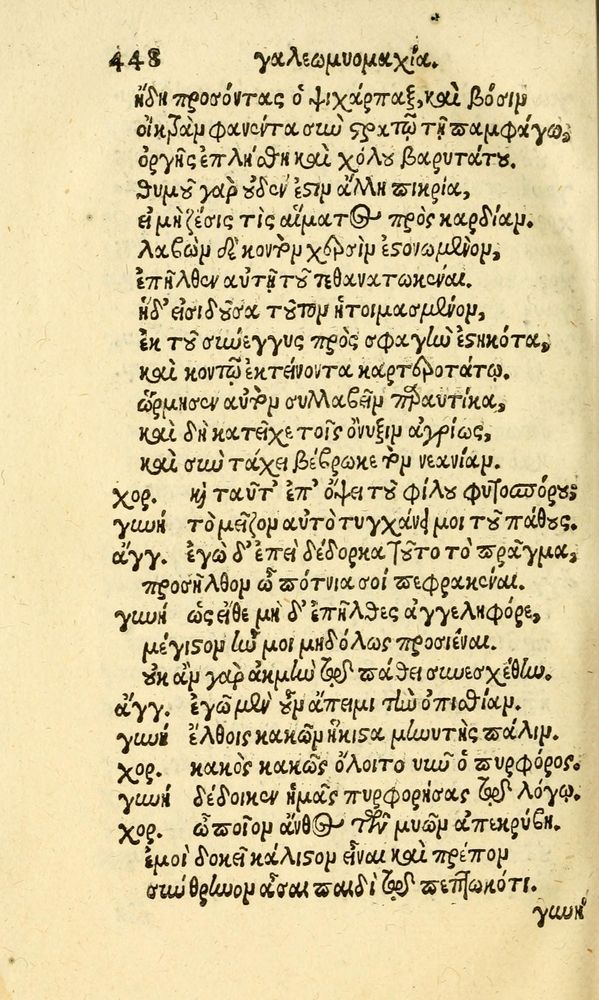 448 γαλεωμυομαχία.
ἤδη προσόντας ὁ ψιχάρπαξ, καὶ βόσιν
οἰκτρὰν φανέντα σὺν στρατῷ τῇ παμφάγῳ,
ὀργῆς ἐπλήσθη καὶ χόλου βαρυτάτου.
θυμοῦ γὰρ οὐδέν ἐστιν ἄλλη πικρία,
εἰ μὴ ζέσις τὶς αἵματος πρὸς καρδίαν.
λαβὼν δὲ κοντὸν χερσὶν ἐστονωμένον,
ἐπῆλθεν αὐτῇ τοῦ τεθανατωκέναι.
ἡ δ' εἰσιδοῦσα τοῦτον ἡτοιμασμένον,
ἐκ τοῦ συνέγγυς πρὸς σφαγὴν ἑστηκότα,
καὶ κοντῷ ἐκτείνοντα καρτερωτάτῳ.
ὥρμησεν αὐτὸν συλλαβεῖν παραυτίκα,
καὶ δὴ κατεῖχε τοῖς ὄνυξιν ἀγρίως,
καὶ σὺν τάχει βέβρωκε τὸν νεανίαν.
χορ. καὶ ταῦτ' ἐπ' ὄψει τοῦ φίλου φυτοσπόρου;
γυνή τὸ μεῖζον αὐτὸ τυγχάνει μοι τοῦ πάθους.
ἄγγ. ἐγὼ δ' ἐπεὶ δέδορκα τοῦτο τὸ πρᾶγμα,
προσῆλθον ὦ πότνια σοὶ πεφρακέναι.
γυνή ὡς εἴθε μὴ δ' ἐπῆλθες ἀγγεληφόρε,
μέγιστον ἦν μοι μηδόλως προσιέναι.
οὐκ ἂν γὰρ ἀκμὴν τῷ πάθει συνεσχέθην.
ἄγγ. ἐγὼ μὲν οὖν ἄπειμι τὴν ὀπισθίαν.
γυνή ἔλθοις κακῶν ἥκιστα μηνυτὴς πάλιν.
χορ. κακὸς κακῶς ὄλοιτο νῦν ὁ πυρφόρος.
γυνή δέδοικεν ἡμᾶς πυρφορήσας τῷ λόγῳ.
χορ. ὦ ποῖον ἄνθος τῶν μυῶν ἀπεκρύβη.
ἐμοὶ δοκεῖ κάλιστον εἶναι καὶ πρέπον
σὺν θρῆνον ᾆσαι παιδὶ τῷ πεπτωκότι.
γυνή